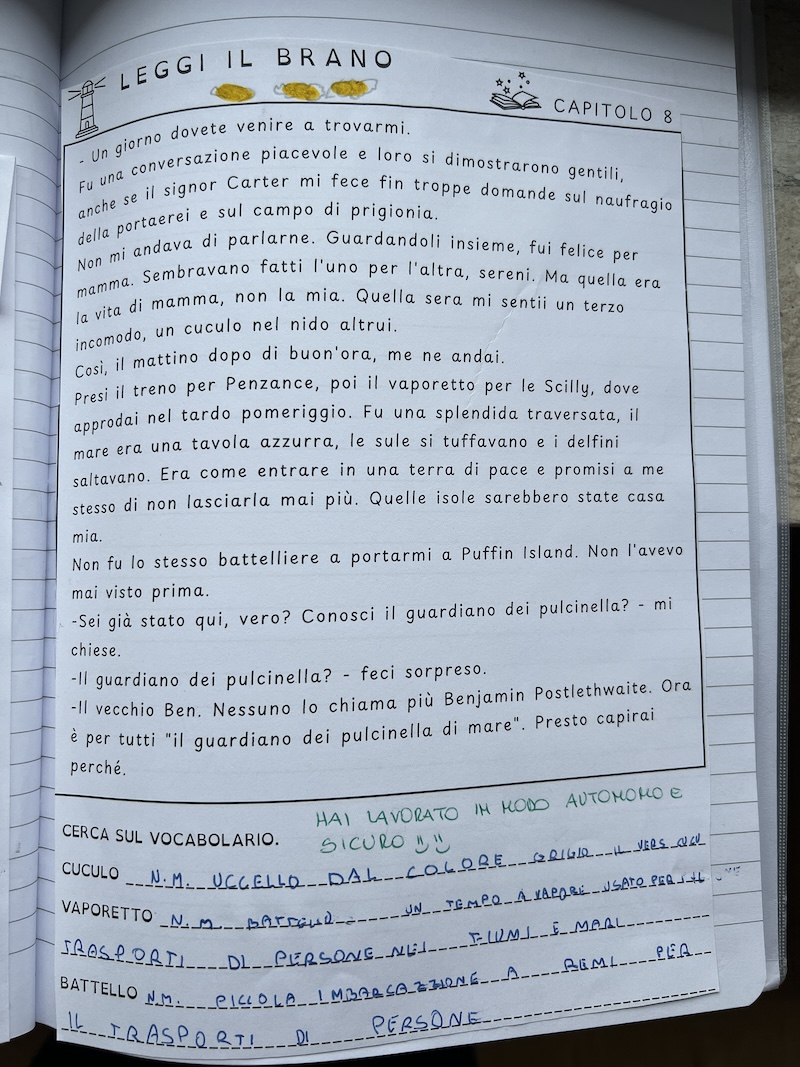 LEGGI IL BRANO
CAPITOLO 8
- Un giorno dovete venire a trovarmi.
Fu una conversazione piacevole e loro si dimostrarono gentili,
anche se il signor Carter mi fece fin troppe domande sul naufragio
della portaerei e sul campo di prigionia.
Non mi andava di parlarne. Guardandoli insieme, fui felice per
mamma. Sembravano fatti l'uno per l'altra, sereni. Ma quella era
la vita di mamma, non la mia. Quella sera mi sentii un terzo
incomodo, un cuculo nel nido altrui.
Così, il mattino dopo di buon'ora, me ne andai.
Presi il treno per Penzance, poi il vaporetto per le Scilly, dove
approdai nel tardo pomeriggio. Fu una splendida traversata, il
mare era una tavola azzurra, le sule si tuffavano e i delfini
saltavano. Era come entrare in una terra di pace e promisi a me
stesso di non lasciarla mai più. Quelle isole sarebbero state casa
mia.
Non fu lo stesso battelliere a portarmi a Puffin Island. Non l'avevo
mai visto prima.
-Sei già stato qui, vero? Conosci il guardiano dei pulcinella? - mi
chiese.
-Il guardiano dei pulcinella? - feci sorpreso.
-Il vecchio Ben. Nessuno lo chiama più Benjamin Postlethwaite. Ora
è per tutti "il guardiano dei pulcinella di mare". Presto capirai
perché.
HAI LAVORATO IN MODO AUTONOMO E
SICURO
CERCA SUL VOCABOLARIO.
CUCULO N.M. UCCELLO DAL COLORE GRIGIO IL VERS CUCU
VAPORETTO N.M. BATTELLO UN TEMPO A VAPORE USATO PER I
TRASPORTI DI PERSONE NEI FIUMI E MARI
BATTELLO N.M. PICCOLA IMBARCAZIONE A REMI PER
IL TRASPORTI DI PERSONE